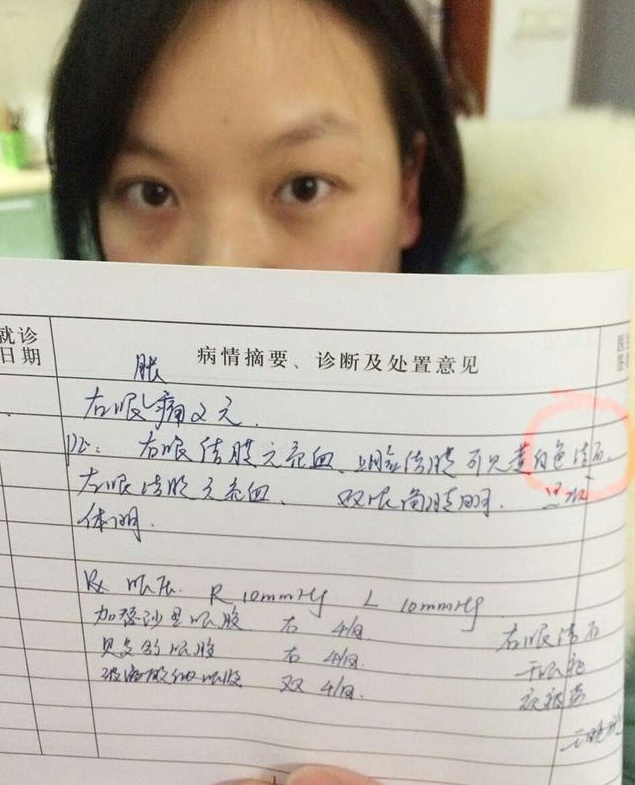 就诊
日期
病情摘要、诊断及处置意见
胀
右眼痛2天.
PE: 右眼结膜无充血、上睑结膜可见黄白色结石.
左眼结膜无充血、双眼角膜明.
体明.
Rx 眼压. R 10mmHg L 10mmHg
加替沙星眼胶 右 4/日
右眼结石
贝复舒眼胶 右 4/日.
玻璃酸钠眼液 双 4/日.